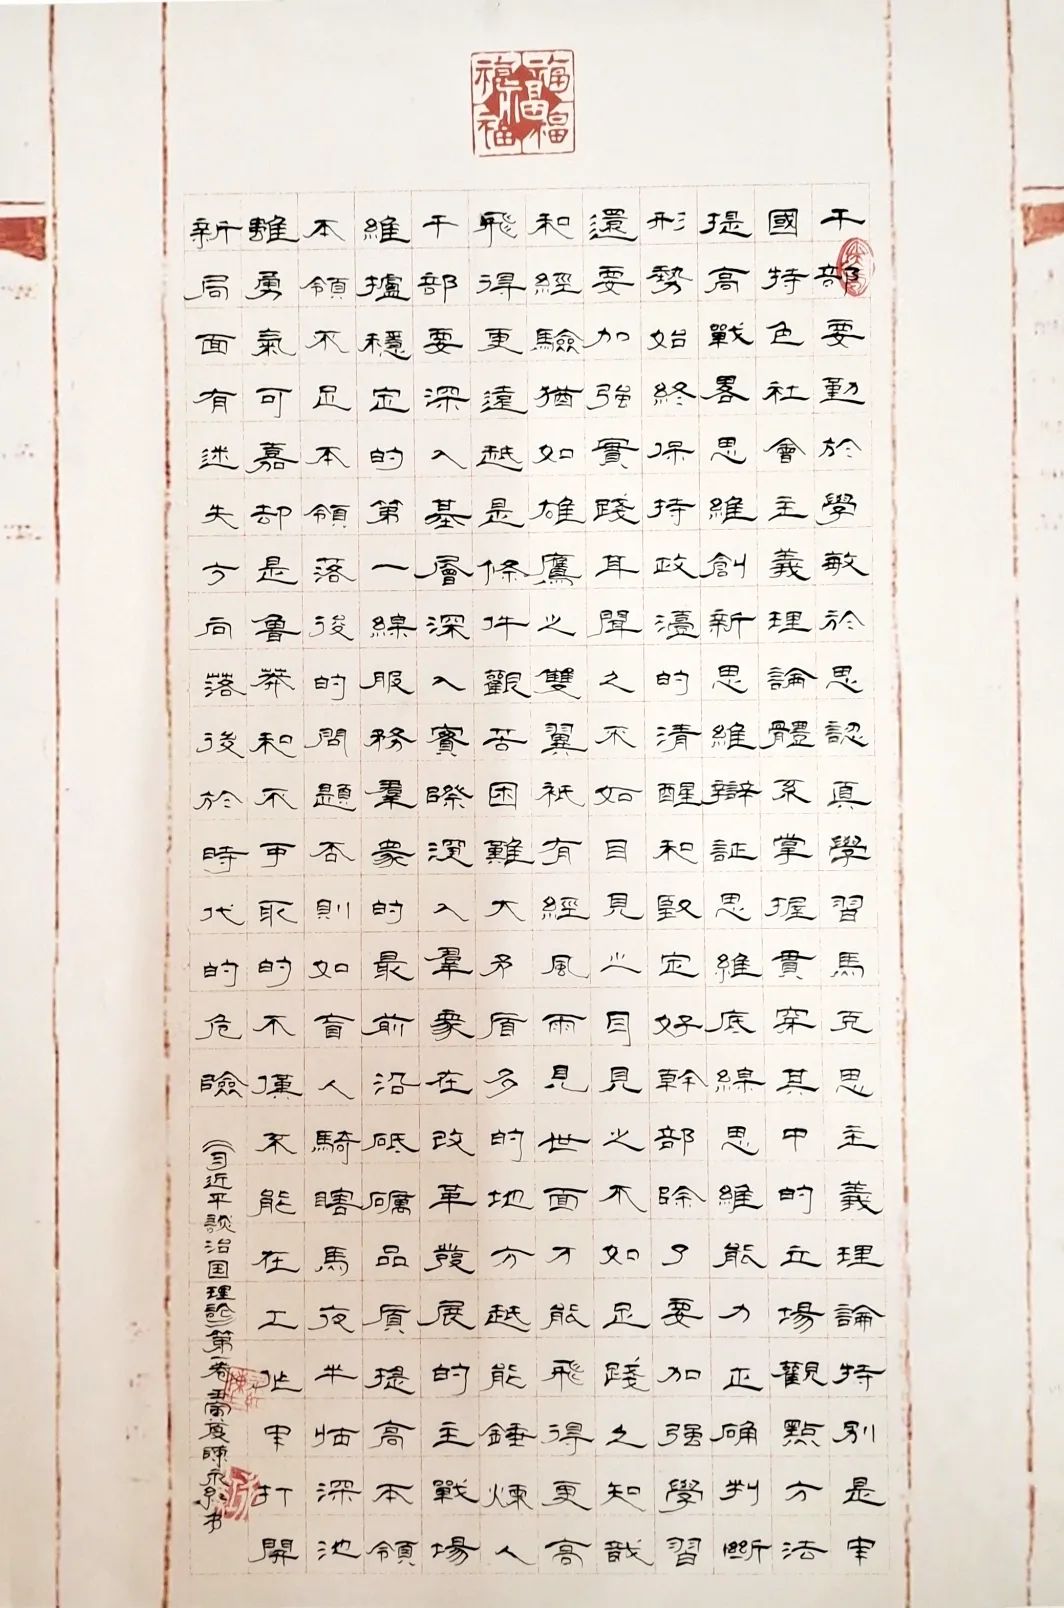 福福福福福
干部要勤於學敏於思認真學習馬克思主義理論特別是中
國特色社會主義理論體系掌握貫穿其中的立場觀點方法
提高戰畧思維創新思維辯証思維底線思維能力正确判斷
形勢始終保持政的清醒和堅定好幹部除了要加强學習
還要加強實踐耳聞之不如目見之目見之不如足踐之知哉
和經驗猶如雄鷹之雙翼衹有經風雨見世面才能飛得更高
飛得更遠越是條件艱苦困難大矛盾多的地方越能錘煉人
干部要深入基層深入實際深入羣衆在改革發展的主戰場
維護穩定的第一線服務羣衆的最前沿砥礪品質提高本領
本領不足本領落後的問題否則如盲人騎瞎馬夜半临深池
雖勇氣可嘉却是魯莽和不可取的不僅不能在工作中打開
新局面有迷失方向落後於時代的危險
《习近平談治国理論》第一卷 陳永书